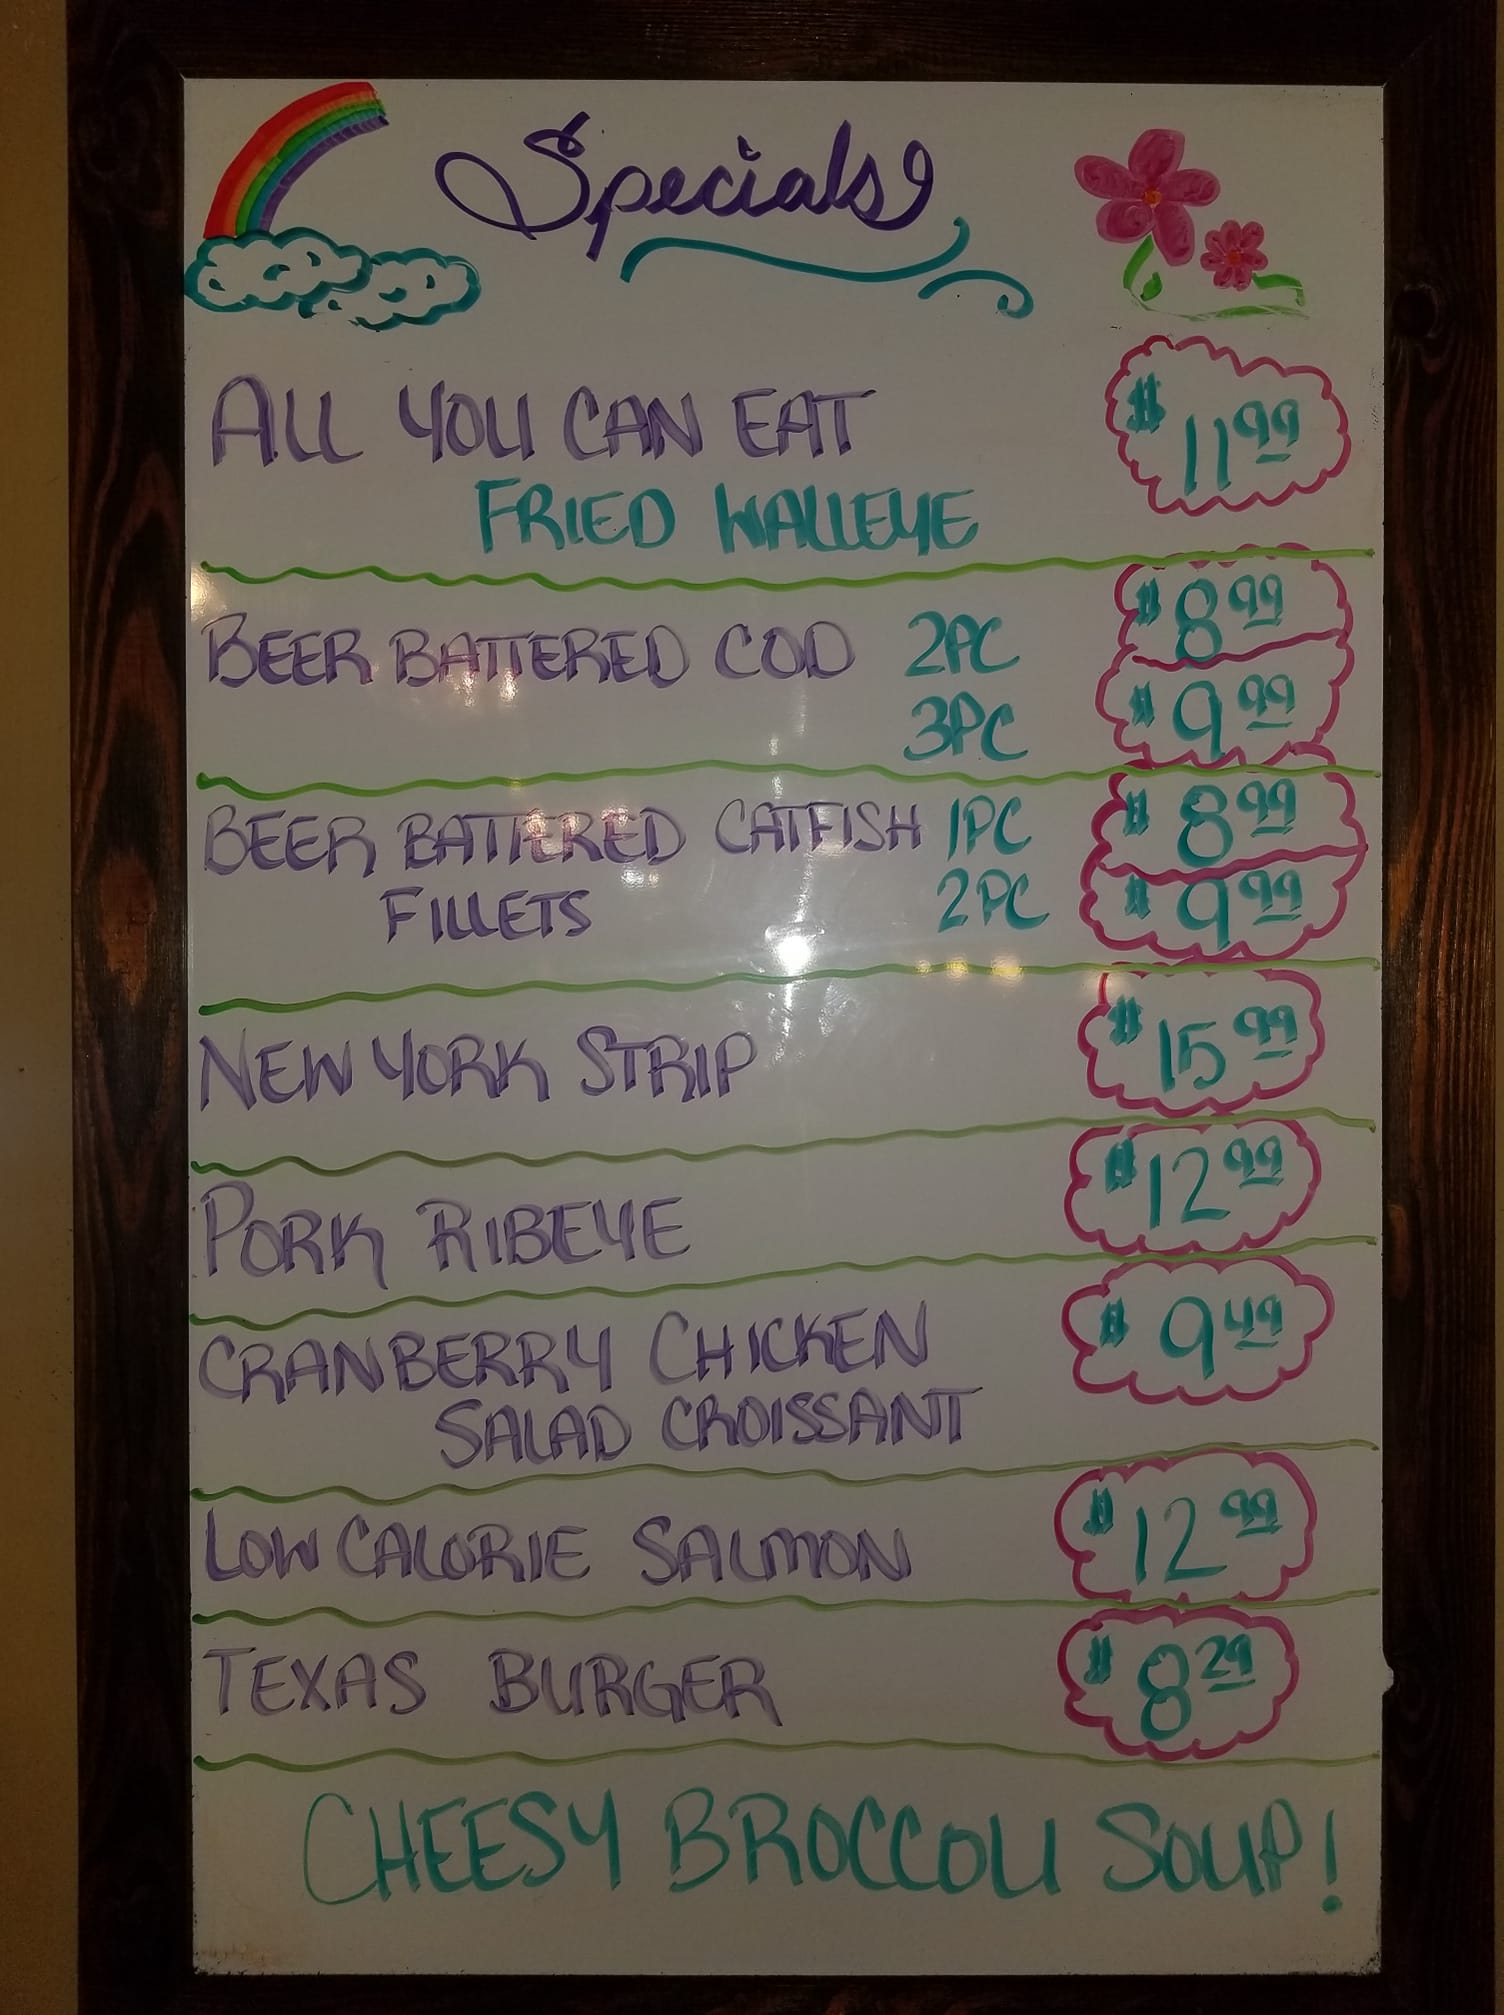 Specials
ALL YOU CAN EAT $11.99
FRIED WALLEYE
BEER BATTERED COD 2PC $8.99
3PC $9.99
BEER BATTERED CATFISH 1PC $8.99
FILLETS 2PC $9.99
NEW YORK STRIP $15.99
PORK RIBEYE $12.99
CRANBERRY CHICKEN $9.49
SALAD CROISSANT
LOW CALORIE SALMON $12.99
TEXAS BURGER $8.29
CHEESY BROCCOLI SOUP!